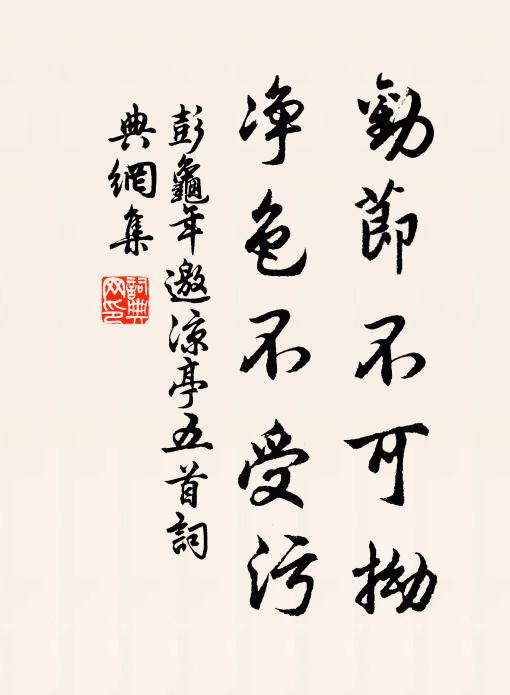 勁節不可拗
净色不受污
彭龜年邀涼亭五首詞
典網集
詞典
网印